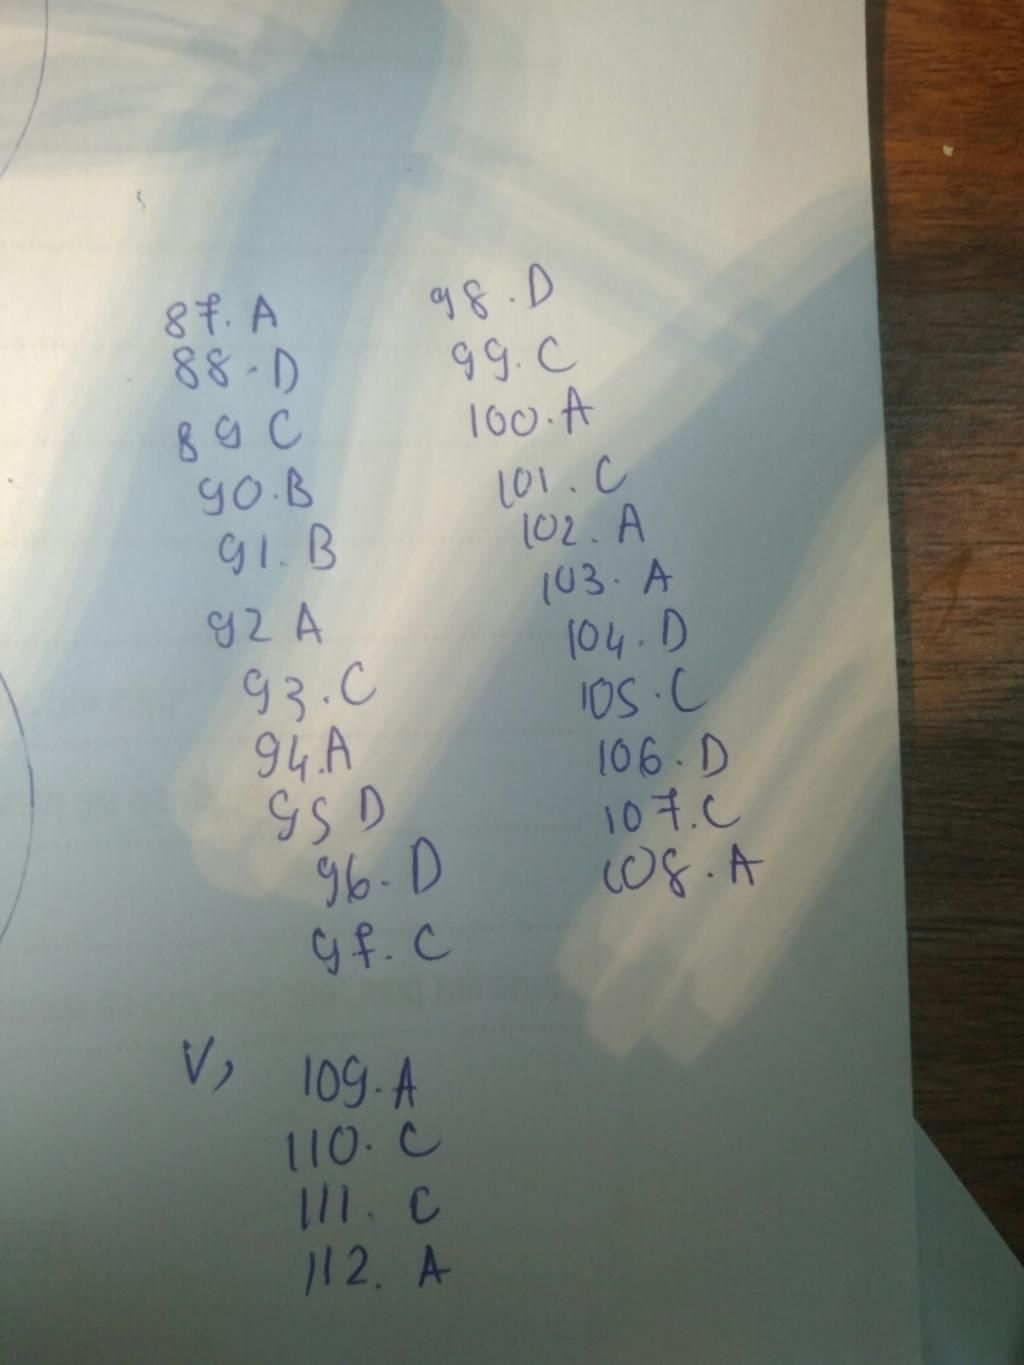 87. A
88. D
89 C
90. B
91. B
92 A
93. C
94. A
95 D
96. D
97. C
98. D
99. C
100. A
101. C
102. A
103. A
104. D
105. C
106. D
107. C
108. A
V,
109. A
110. C
111. C
112. A